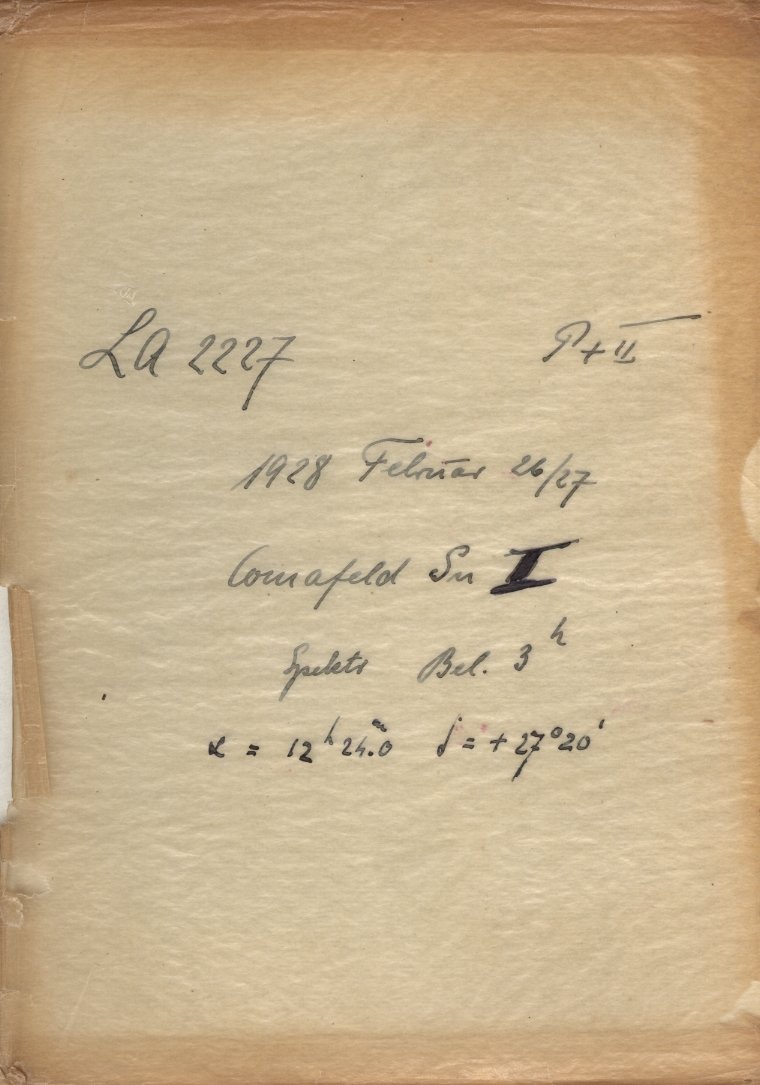 LA 2227 P + II
1928 Februar 26/27
Comafeld Sn I
Spektr Bel. 3ʰ
α = 12ʰ 24ᵐ.0 δ = + 27° 20'